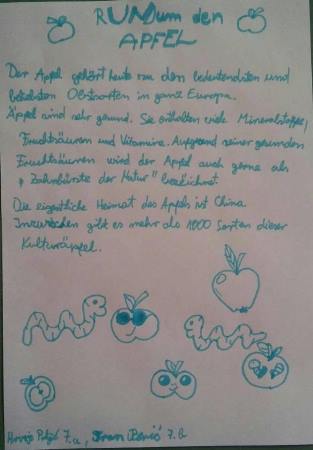 RUNDum den
APFEL
Der Apfel gehört heute zu den bedeutendsten und
beliebsten Obstsorten in ganz Europa.
Äpfel sind sehr gesund. Sie enthalten viele Mineralstoffe,
Fruchtsäuren und Vitamine. Aufgrund seiner gesunden
Fruchtsäuren wird der Apfel auch gerne als
„Zahnbürste der Natur" bezeichnet.
Die eigentliche Heimat des Apfels ist China.
Inzwischen gibt es mehr als 1000 Sorten dieser
Kulturäpfel.
7.a, Ivan 7.a